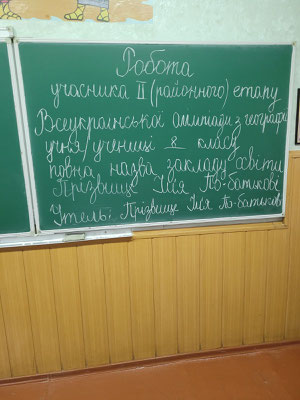 Робота
учасника II (районного) етапу
Всеукраїнської олімпіади з географії
учня/учениці 8 класу
повна назва закладу освіти
Прізвище Імя По-батькові
Учитель: Прізвище Імя По-батькові